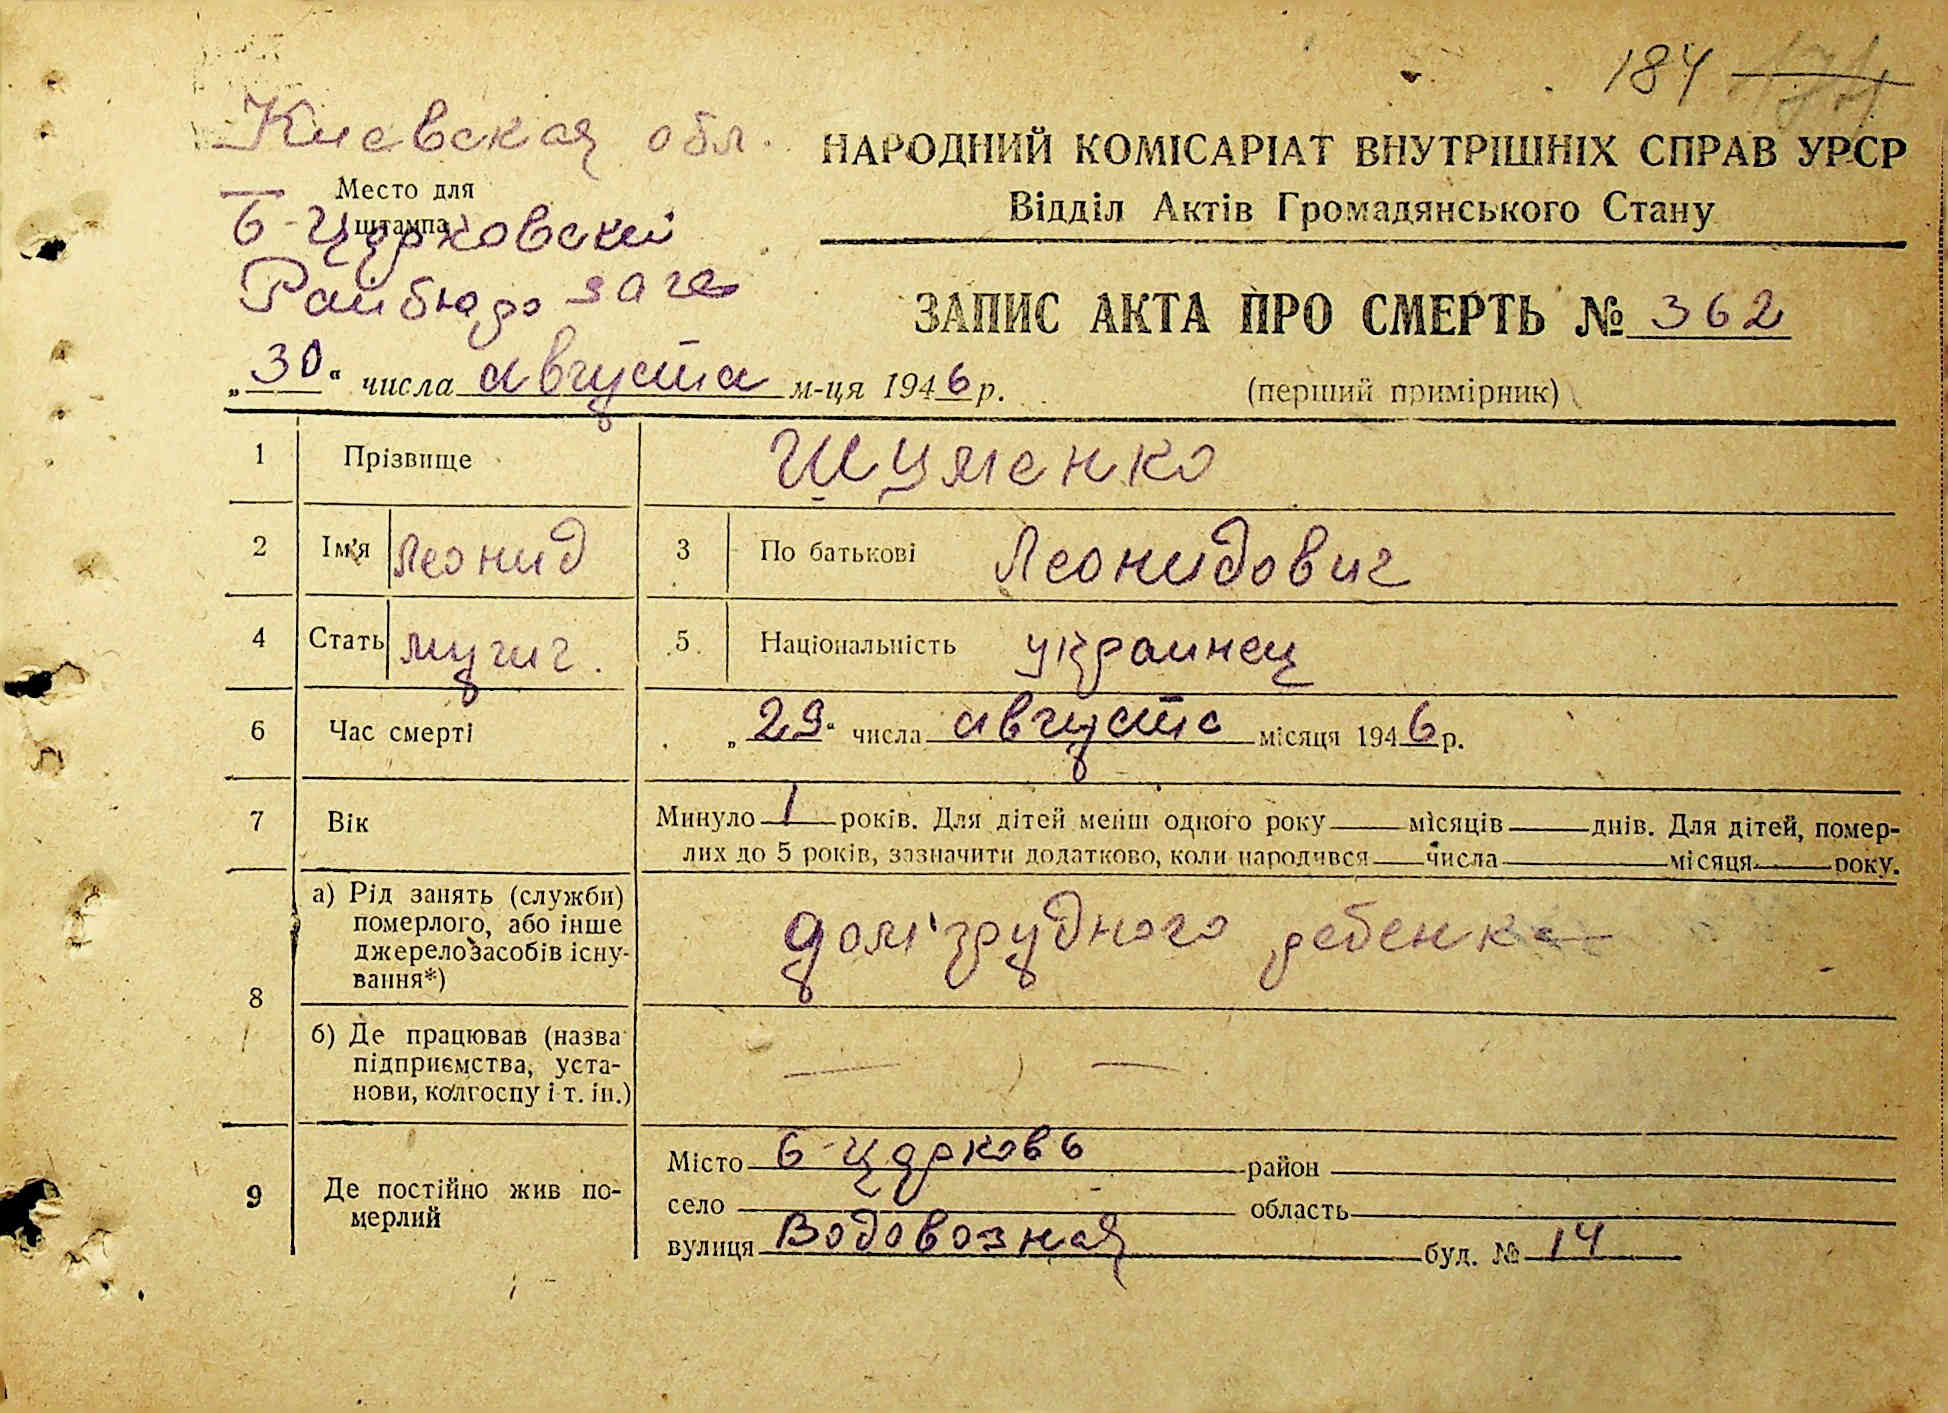 184
Киевская обл.
НАРОДНИЙ КОМІСАРІАТ ВНУТРІШНІХ СПРАВ УРСР
Відділ Актів Громадянського Стану
Место для
штампа
Б-Церковский
Райбюро загс
ЗАПИС АКТА ПРО СМЕРТЬ № 362
„30“ числа августа м-ця 1946 р.
(перший примірник)
1 Прізвище Шуменко
2 Ім'я Леонид 3 По батькові Леонидович
4 Стать мужч. 5 Національність украинец
6 Час смерті „29“ числа августа місяця 1946 р.
7 Вік Минуло 1 років. Для дітей менш одного року місяців днів. Для дітей, помер-
лих до 5 років, зазначити додатково, коли народився числа місяця року.
8 а) Рід занять (служби)
померлого, або інше
джерело засобів існу-
вання*)
дом грудного ребенка
б) Де працював (назва
підприємства, уста-
нови, колгоспу і т. ін.)
— —
9 Де постійно жив по-
мерлий
Місто Б-Церковь район
село область
вулиця Водовозная буд. № 14